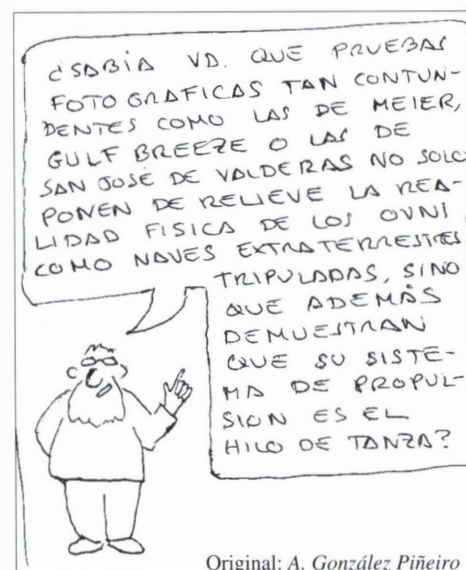 ¿SABIA VD. QUE PRUEBAS
FOTOGRAFICAS TAN CONTUN-
DENTES COMO LAS DE MEIER,
GULF BREEZE O LAS DE
SAN JOSÉ DE VALDERAS NO SOLO
PONEN DE RELIEVE LA REA-
LIDAD FISICA DE LOS OVNI,
COMO NAVES EXTRATERRESTRES
TRIPULADAS, SINO
QUE ADEMÁS
DEMUESTRAN
QUE SU SISTE-
MA DE PROPUL-
SION ES EL
HILO DE TANZA?
Original: A. González Piñeiro